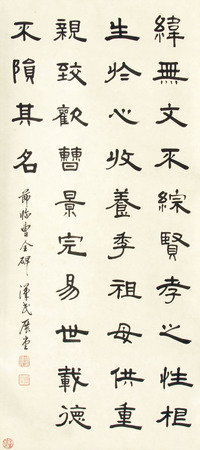 緯無文不綜賢孝之性根
生於心收養季祖母供重
親致歡曹景完易世載德
不隕其名
節臨曹全碑 漢民 展堂